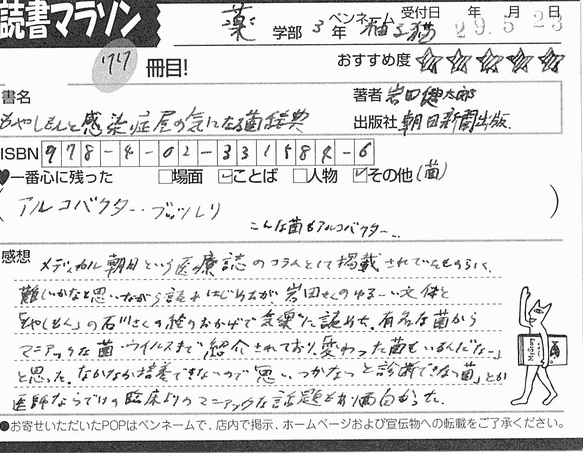 読書マラソン
薬 学部 3年 ペンネーム 柚子猫 受付日 29.年 5月 23日
77 冊目!
おすすめ度 ☆☆☆☆☆
書名 もやしもんと感染症屋の気になる菌辞典
著者 岩田健太郎
出版社 朝日新聞出版
ISBN 978-4-02-331584-6
♥一番心に残った □場面 ☑ことば □人物 ☑その他(菌)
(アルコバクター・ブッツレリ
こんな菌もアルコバクター… )
感想 メディカル朝日という医療誌のコラムとして掲載されていたものらしく、
難しいかなと思いながら読みはじめたが、岩田さんのゆるーい文体と
「もやしもん」の石川さんの絵のおかげで気楽に読めた。有名な菌から
マニアックな菌・ウイルスまで紹介されており、変わった菌もいるんだな〜」
と思った。なかなか培養できないので「思いつかないと診断できない菌」とか
医師ならではの臨床よりのマニアックな話題があり面白かった。
●お寄せいただいたPOPはペンネームで、店内で掲示、ホームページおよび宣伝物への転載をご了承ください。